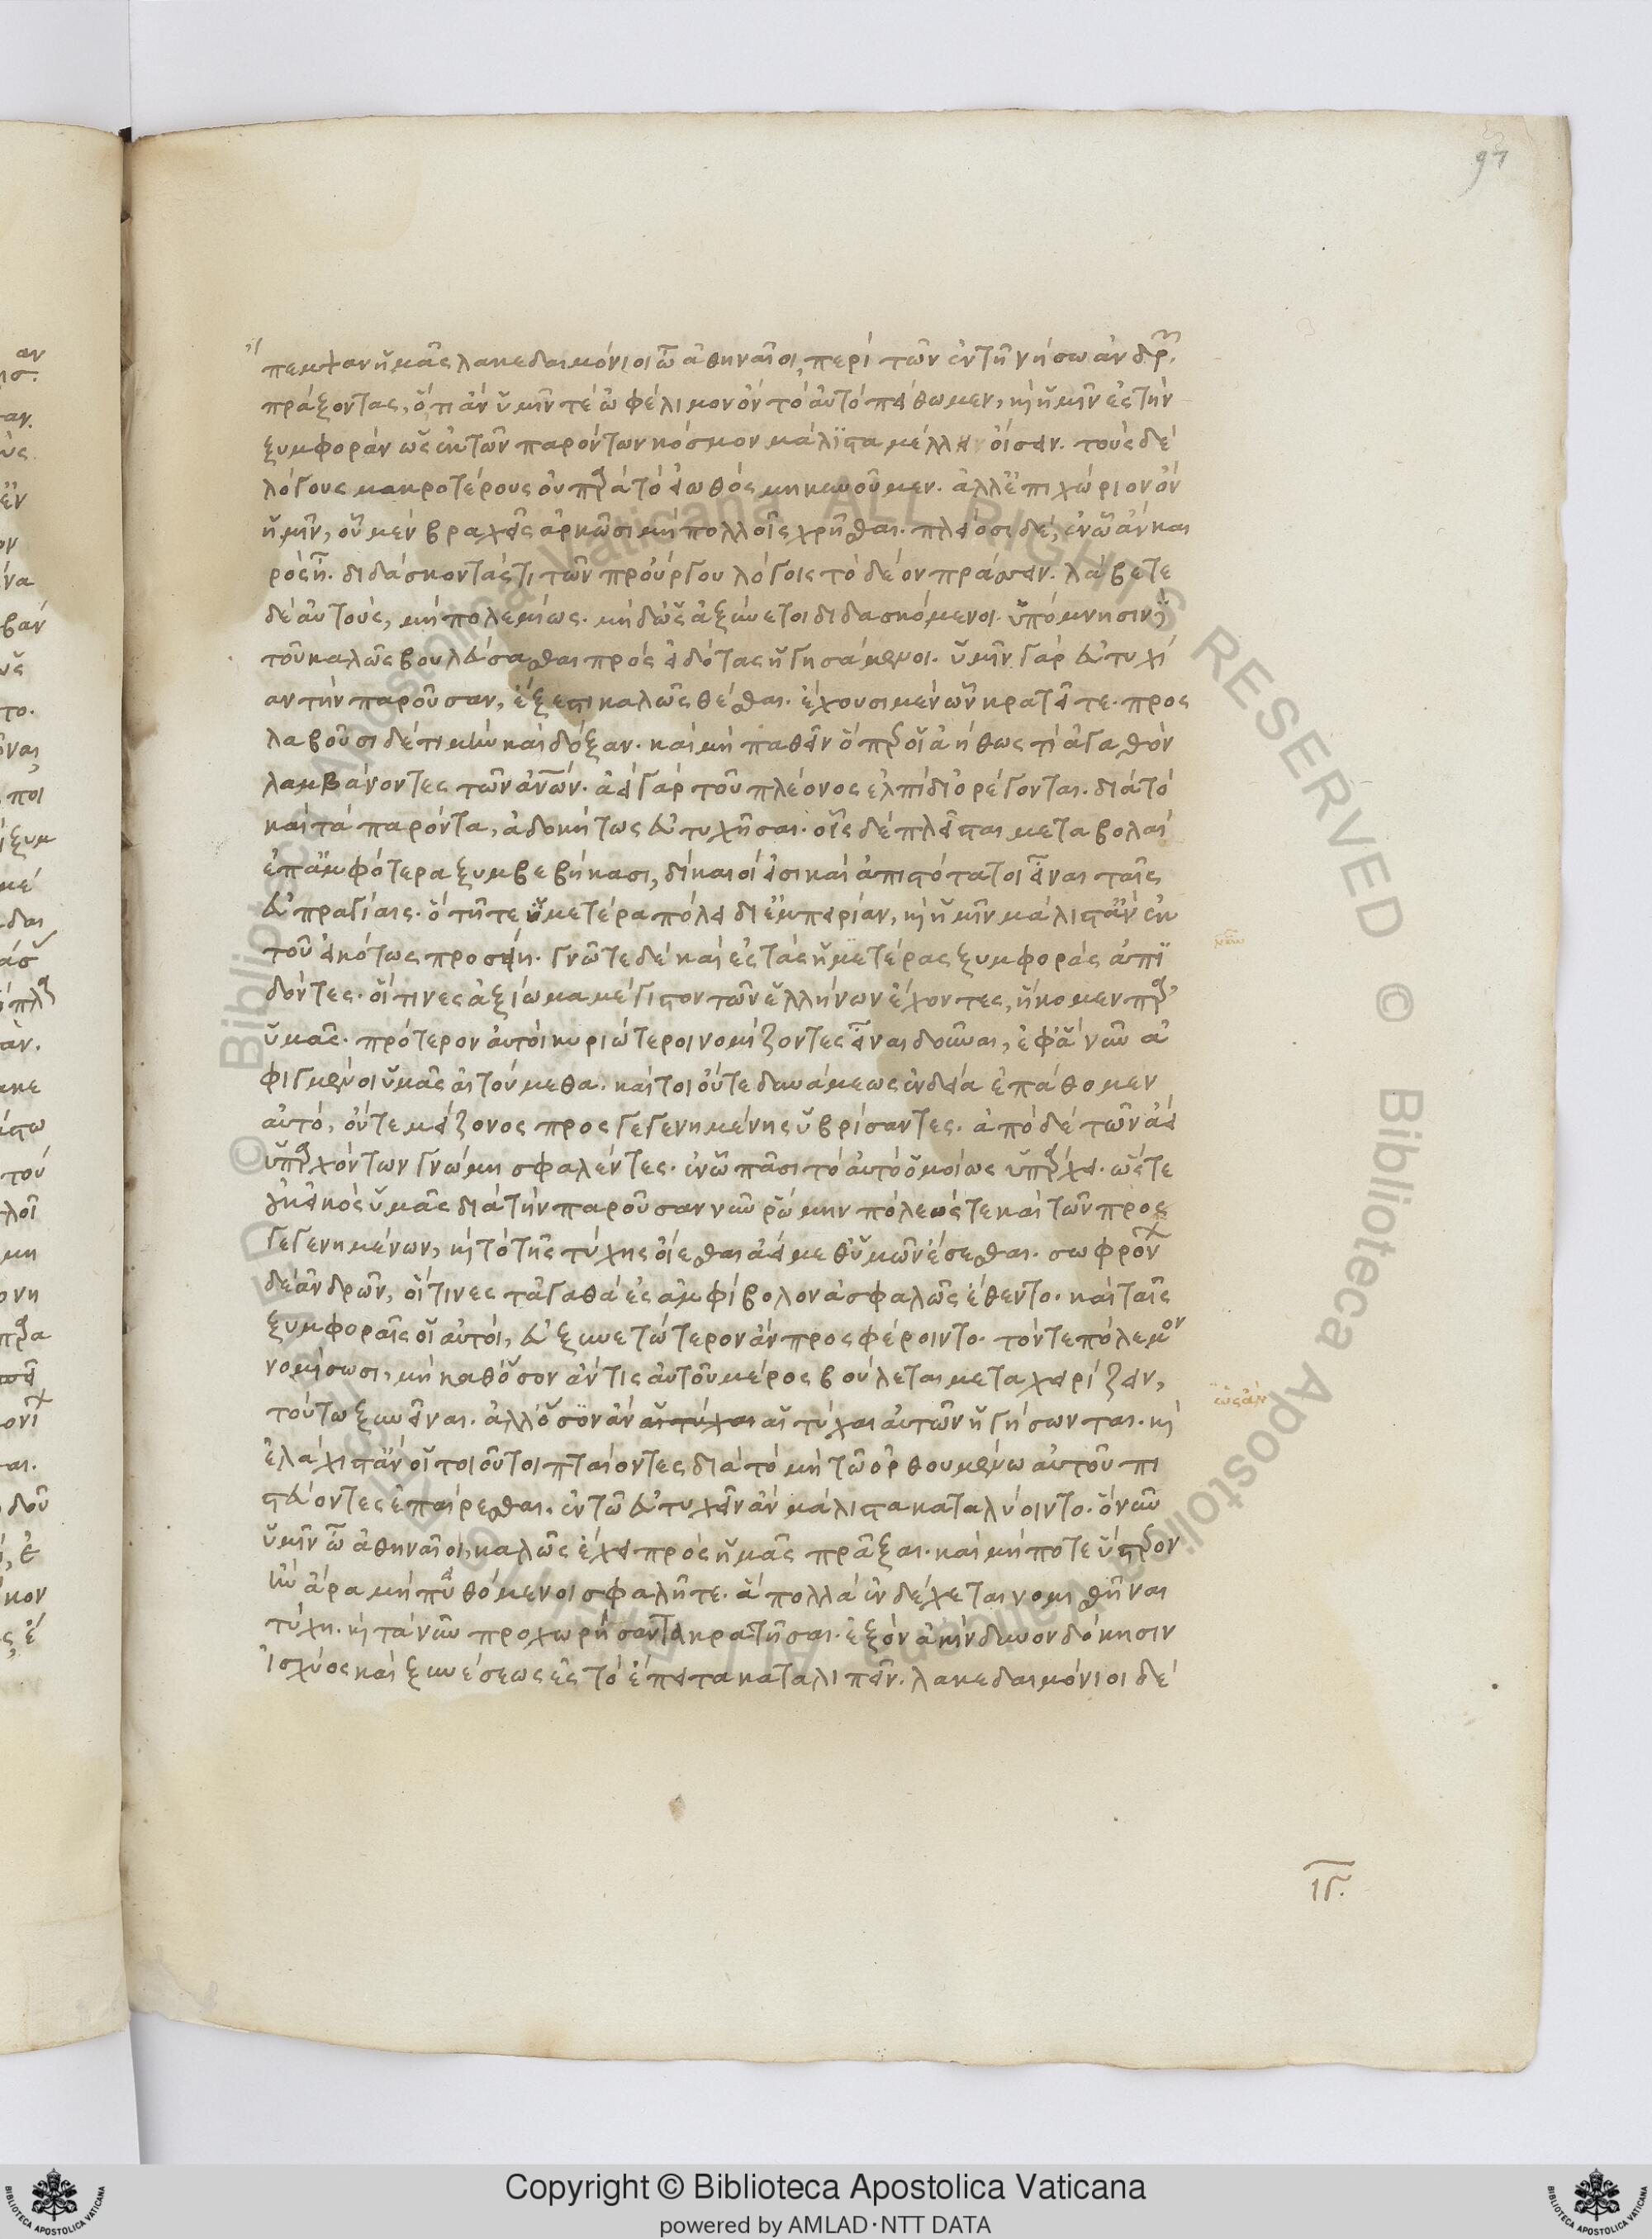 97
ἔπεμψαν ἡμᾶς λακεδαιμόνιοι ὦ ἀθηναῖοι, περὶ τῶν ἐν τῇ νήσω ἀνδρ.
πράξοντας, ὅτι ἂν ὑμῖν τὲ ὠφέλιμον ὂν τὸ αὐτὸ πείθωμεν, κὴ ἡμῖν ἐς τὴν
ξυμφορὰν ὡς ἐκ τῶν παρόντων κόσμον μάλιστα μέλλει οἴσειν. τοὺς δὲ
λόγους μακροτέρους οὐ παρὰ τὸ εἰωθὸς μηκυνοῦμεν. ἀλλ' ἐπιχώριον ὂν
ἡμῖν, οὗ μὲν βραχεῖς ἀρκῶσι μὴ πολλοῖς χρῆσθαι. πλείοσι δὲ, ἐν ᾧ ἂν και
ρὸς ἦ. διδάσκοντάς τι τῶν προύργου λόγοις τὸ δέον πράσσειν. λάβετε
δὲ αὐτοὺς, μὴ πολεμίως. μηδ' ὡς ἀξύνετοι διδασκόμενοι. ὑπόμνησιν δὲ
τοῦ καλῶς βουλεύσασθαι πρὸς εἰδότας ἡγησάμενοι. ὑμῖν γὰρ εὐτυχί
αν τὴν παροῦσαν, ἔξεστι καλῶς θέσθαι. ἔχουσι μὲν ὧν κρατεῖτε. προς
λαβοῦσι δὲ τιμὴν καὶ δόξαν. καὶ μὴ παθεῖν ὅπερ οἱ ἀήθως τὶ ἀγαθὸν
λαμβάνοντες τῶν ἀνων. ἀεὶ γὰρ τοῦ πλέονος ἐλπίδι ὀρέγονται. διὰ τὸ
καὶ τὰ παρόντα, ἀδοκήτως εὐτυχῆσαι. οἷς δὲ πλεῖσται μεταβολαὶ
ἐπ' ἀμφότερα ξυμβεβήκασι, δίκαιοί εἰσι καὶ ἀπιστότατοι εἶναι ταῖς
εὐπραγίαις. ὃ τῆ τε ὑμετέρα πόλει δι' ἐμπειρίαν, κὴ ἡμῖν μάλιστ' ἂν ἐκ
τοῦ εἰκότως προσείη. γνῶτε δὲ καὶ ἐς τὰς ἡμετέρας ξυμφορὰς ἀπι
δόντες. οἵτινες ἀξίωμα μέγιστον τῶν ἑλλήνων ἔχοντες, ἥκομεν παρ'
ὑμᾶς. πρότερον αὐτοὶ κυριώτεροι νομίζοντες εἶναι δοῦναι, ἐφ' ἃ νῦν ἀ
φιγμένοι ὑμᾶς αἰτούμεθα. καίτοι οὔτε δυνάμεως ἐνδεία ἐπάθομεν
αὐτὸ, οὔτε μείζονος προς γεγενημένης ὑβρίσαντες. ἀπὸ δὲ τῶν ἀεὶ
ὑπαρχόντων γνώμη σφαλέντες. ἐν ᾧ πᾶσι τὸ αὐτὸ ὁμοίως ὑπάρχει. ὥστε
οὐκ εἰκὸς ὑμᾶς διὰ τὴν παροῦσαν νῦν ῥώμην πόλεώς τε καὶ τῶν προς
γεγενημένων, κὴ τὸ τῆς τύχης οἴεσθαι ἀεὶ μεθ' ὑμῶν ἔσεσθαι. σωφρόν
δὲ ἀνδρῶν, οἵτινες τἀγαθὰ ἐς ἀμφίβολον ἀσφαλῶς ἔθεντο. καὶ ταῖς
ξυμφοραῖς οἱ αὐτοὶ, εὐξυνετώτερον ἂν προςφέροιντο. τόν τε πόλεμον
νομίσωσι, μὴ καθ' ὅσον ἄν τις αὐτοῦ μέρος βούληται μεταχειρίζειν,
τούτω ξυνεῖναι. ἀλλ' ὅσον ἂν αἱ τύχαι αἱ τύχαι αὐτῶν ἡγήσωνται. κὴ
ἐλάχιστ' ἂν οἱ τοιοῦτοι πταίοντες διὰ τὸ μὴ τῶ ὀρθουμένω αὐτοῦ πι
στεύοντες ἐπαίρεσθαι. ἐν τῶ εὐτυχεῖν ἂν μάλιστα καταλύοιντο. ὃ νῦν
ὑμῖν ὦ ἀθηναῖοι, καλῶς ἔχει πρὸς ἡμᾶς πρᾶξαι. καὶ μήποτε ὕστερον
ἢν ἄρα μὴ πειθόμενοι σφαλῆτε. ἃ πολλὰ ἐνδέχεται νομισθῆναι
τύχη. κὴ τὰ νῦν προχωρήσαντα κρατῆσαι. ἐξὸν ἀκίνδυνον δόκησιν
ἰσχύος καὶ ξυνέσεως ἐς τὸ ἔπειτα καταλιπεῖν. λακεδαιμόνιοι δὲ
ὡς ἂν
ιγ.
Copyright © Biblioteca Apostolica Vaticana
powered by AMLAD·NTT DATA